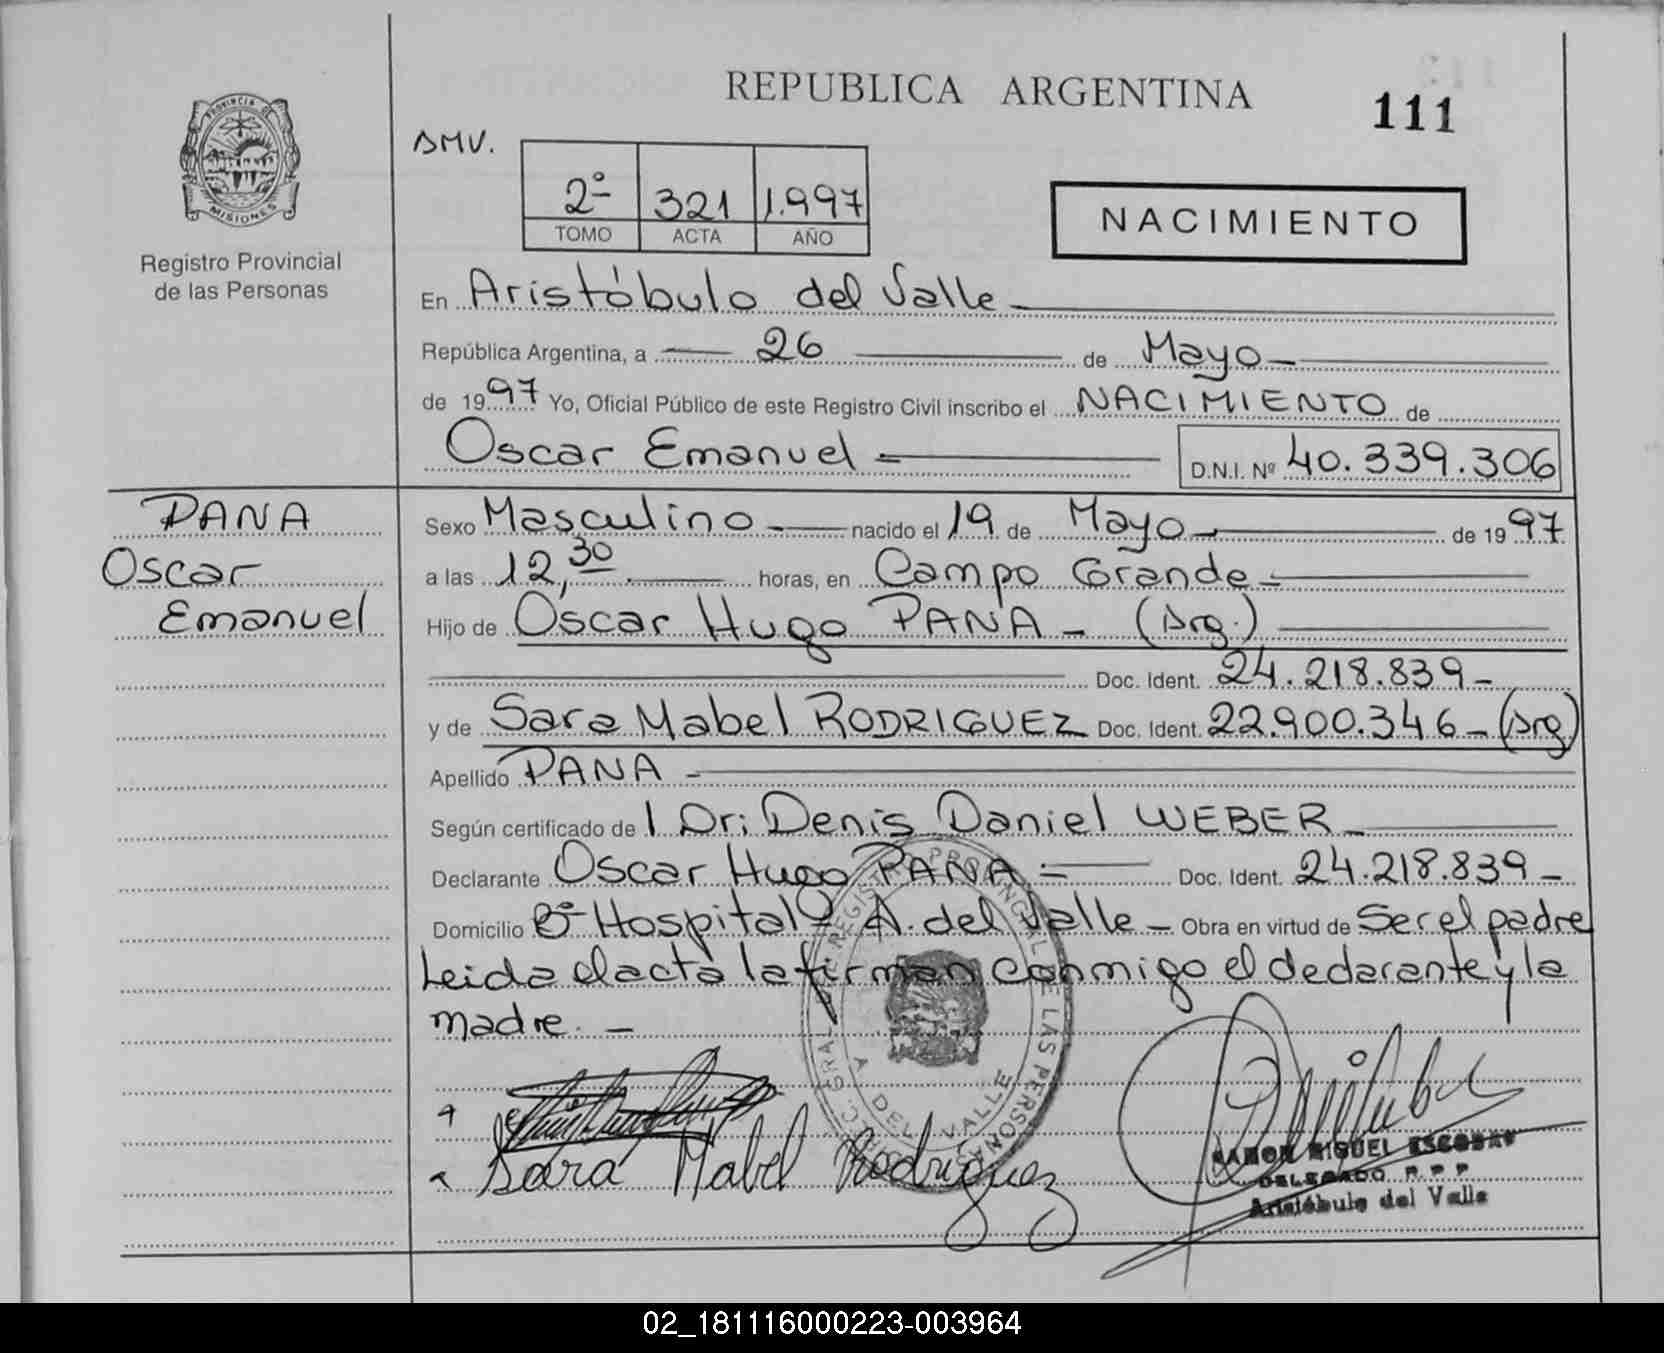 REPUBLICA ARGENTINA
111
PROVINCIA DE
MISIONES
Registro Provincial
de las Personas
DMV.
2º 321 1.997
TOMO ACTA AÑO
NACIMIENTO
En Aristóbulo del Valle
República Argentina, a 26 de Mayo
de 1997 Yo, Oficial Público de este Registro Civil inscribo el NACIMIENTO de
Oscar Emanuel D.N.I. Nº 40.339.306
PANA
Oscar
Emanuel
Sexo Masculino nacido el 19 de Mayo de 1997
a las 12,30 horas, en Campo Grande
Hijo de Oscar Hugo PANA - (Arg.)
Doc. Ident. 24.218.839-
y de Sara Mabel RODRIGUEZ Doc. Ident. 22.900.346-(Arg)
Apellido PANA -
Según certificado de l Dr: Denis Daniel WEBER -
Declarante Oscar Hugo PANA = Doc. Ident. 24.218.839-
Domicilio Bº Hospital - A. del Valle - Obra en virtud de Ser el padre
Leida el acta la firman conmigo el declarante y la
madre. -
Sara Mabel Rodriguez
RAMON MIGUEL ESCOBAR
DELEGADO R.P.P.
Aristóbulo del Valle
02_181116000223-003964